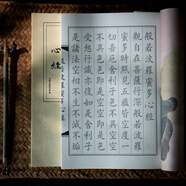 般若波羅蜜多心經
觀自在菩薩行深般若波羅
蜜多時照見五蘊皆空度一
切苦厄舍利子色不異空空
不異色色即是空空即是色
受想行識亦復如是舍利子
是諸法空相不生不滅不垢
心經